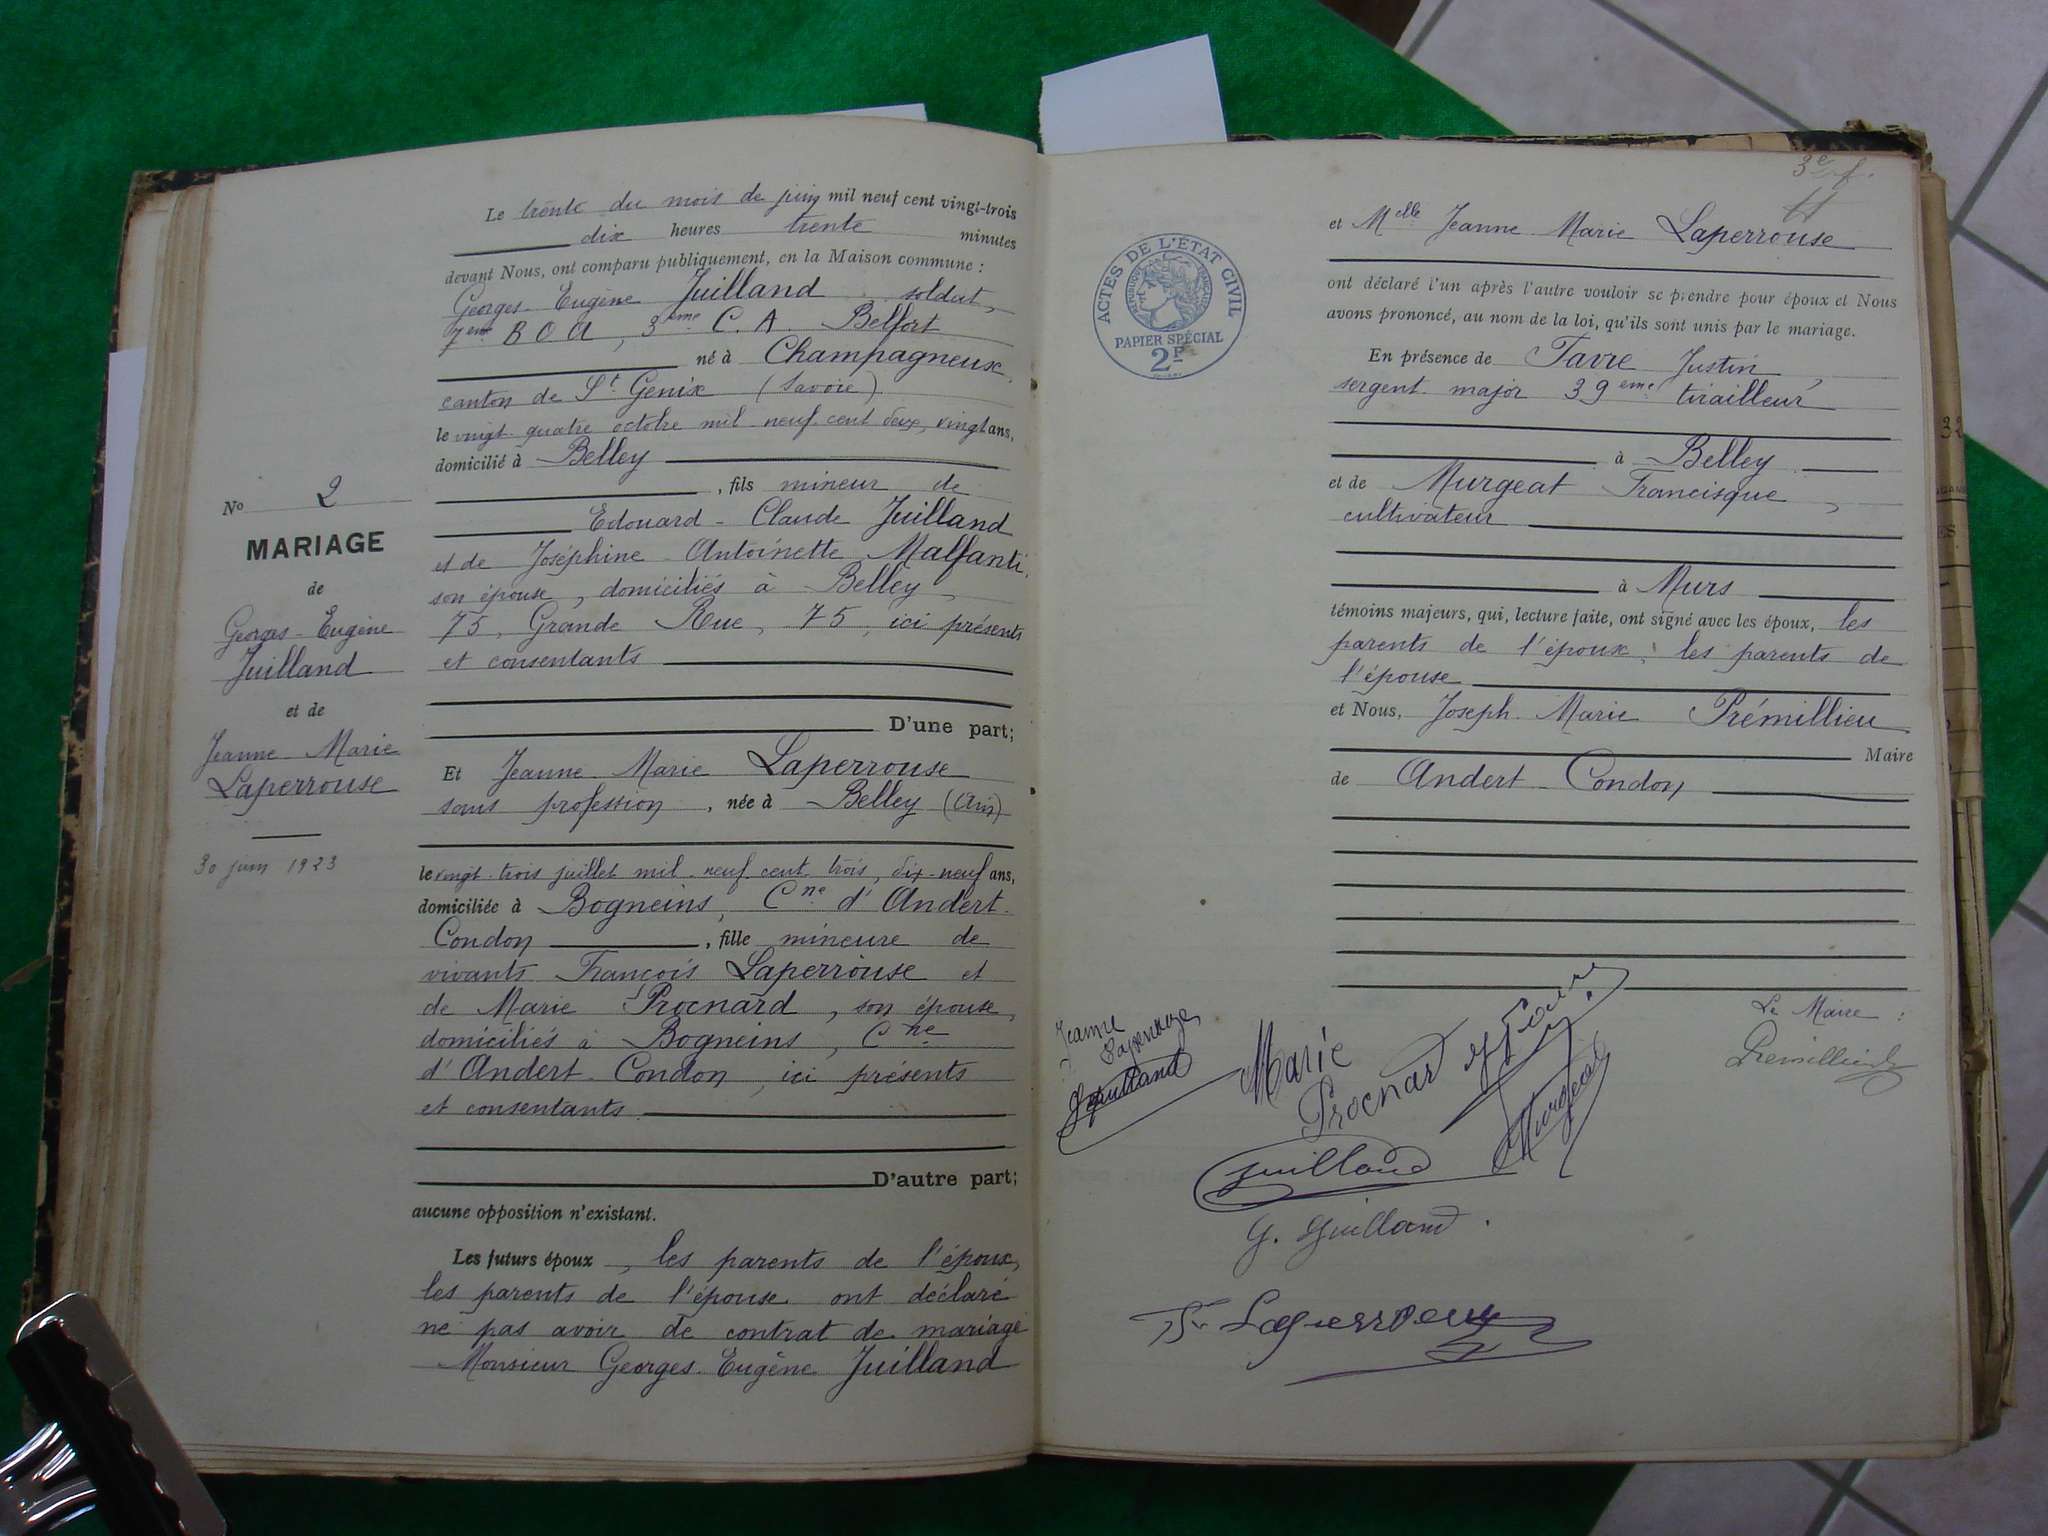 Le trente du mois de juin mil neuf cent vingt-trois
dix heures trente minutes
devant Nous, ont comparu publiquement, en la Maison commune :
Georges-Eugène Juilland soldat,
7eme B O A, 3eme C. A. Belfort
né à Champagneux,
canton de St Genix (Savoie)
le vingt-quatre octobre mil neuf cent deux, vingt ans,
domicilié à Belley
, fils mineur de
Edouard-Claude Juilland
et de Joséphine-Antoinette Malfanti,
son épouse, domiciliés à Belley,
75, Grande Rue, 75, ici présents
et consentants
D'une part;
No 2
MARIAGE
de
Georges-Eugène
Juilland
et de
Jeanne-Marie
Laperrouse
30 juin 1923
Et Jeanne-Marie Laperrouse
sans profession, née à Belley (Ain)
le vingt-trois juillet mil neuf cent trois, dix-neuf ans,
domiciliée à Bogneins, Cne d'Andert-
Condon, fille mineure de
vivants François Laperrouse et
de Marie Procnard, son épouse,
domiciliés à Bogneins, Cne
d'Andert-Condon, ici présents
et consentants.
D'autre part;
aucune opposition n'existant.
Les futurs époux, les parents de l'époux,
les parents de l'épouse ont déclaré
ne pas avoir de contrat de mariage
Monsieur Georges-Eugène Juilland
ACTES DE L'ÉTAT CIVIL
PAPIER SPÉCIAL
2F
et Melle Jeanne-Marie Laperrouse
ont déclaré l'un après l'autre vouloir se prendre pour époux et Nous
avons prononcé, au nom de la loi, qu'ils sont unis par le mariage.
En présence de Favre Justin,
sergent-major 39eme tirailleur,
à Belley
et de Murgeat Francisque,
cultivateur
à Murs
témoins majeurs, qui, lecture faite, ont signé avec les époux, les
parents de l'époux, les parents de
l'épouse
et Nous, Joseph-Marie Prémillieu
Maire
de Andert-Condon
Le Maire :
Premillieu
Jeanne
Laperrouze
Juilland
Marie
Procnard
Favre
Murgeat
Juilland
G. Juilland.